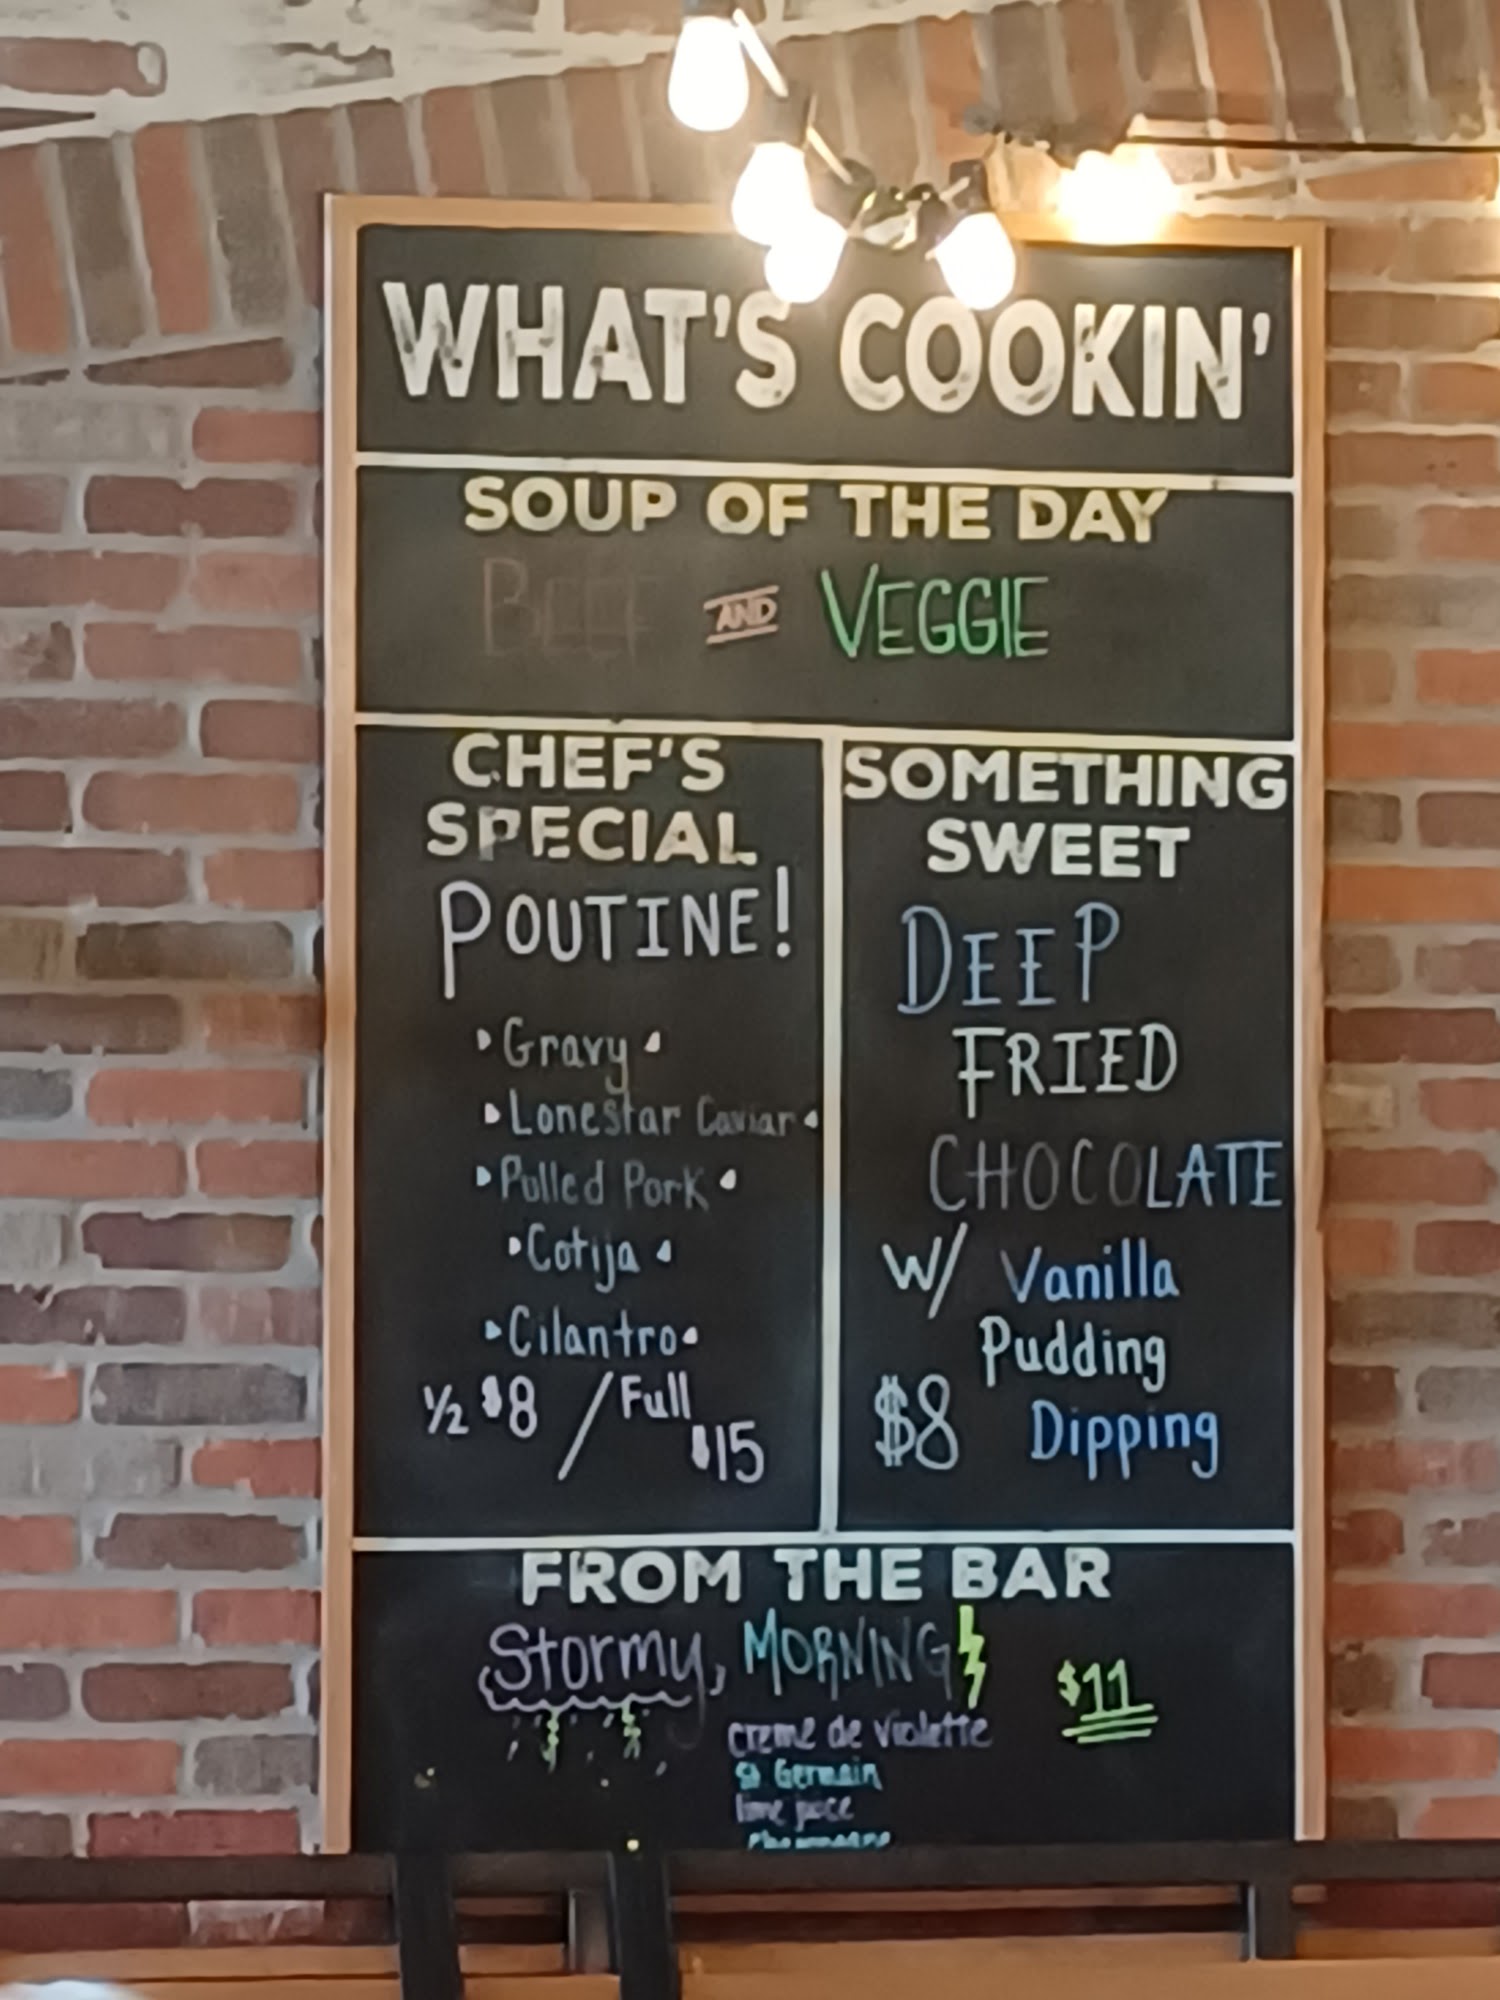 WHAT'S COOKIN'
SOUP OF THE DAY
BEEF AND VEGGIE
CHEF'S
SPECIAL
POUTINE!
Gravy
Lonestar Caviar
Pulled Pork
Cotija
Cilantro
½ $8 / Full
$15
SOMETHING
SWEET
DEEP
FRIED
CHOCOLATE
W/ Vanilla
Pudding
$8 Dipping
FROM THE BAR
Stormy, MORNING
$11
creme de Violette
St Germain
lime juice